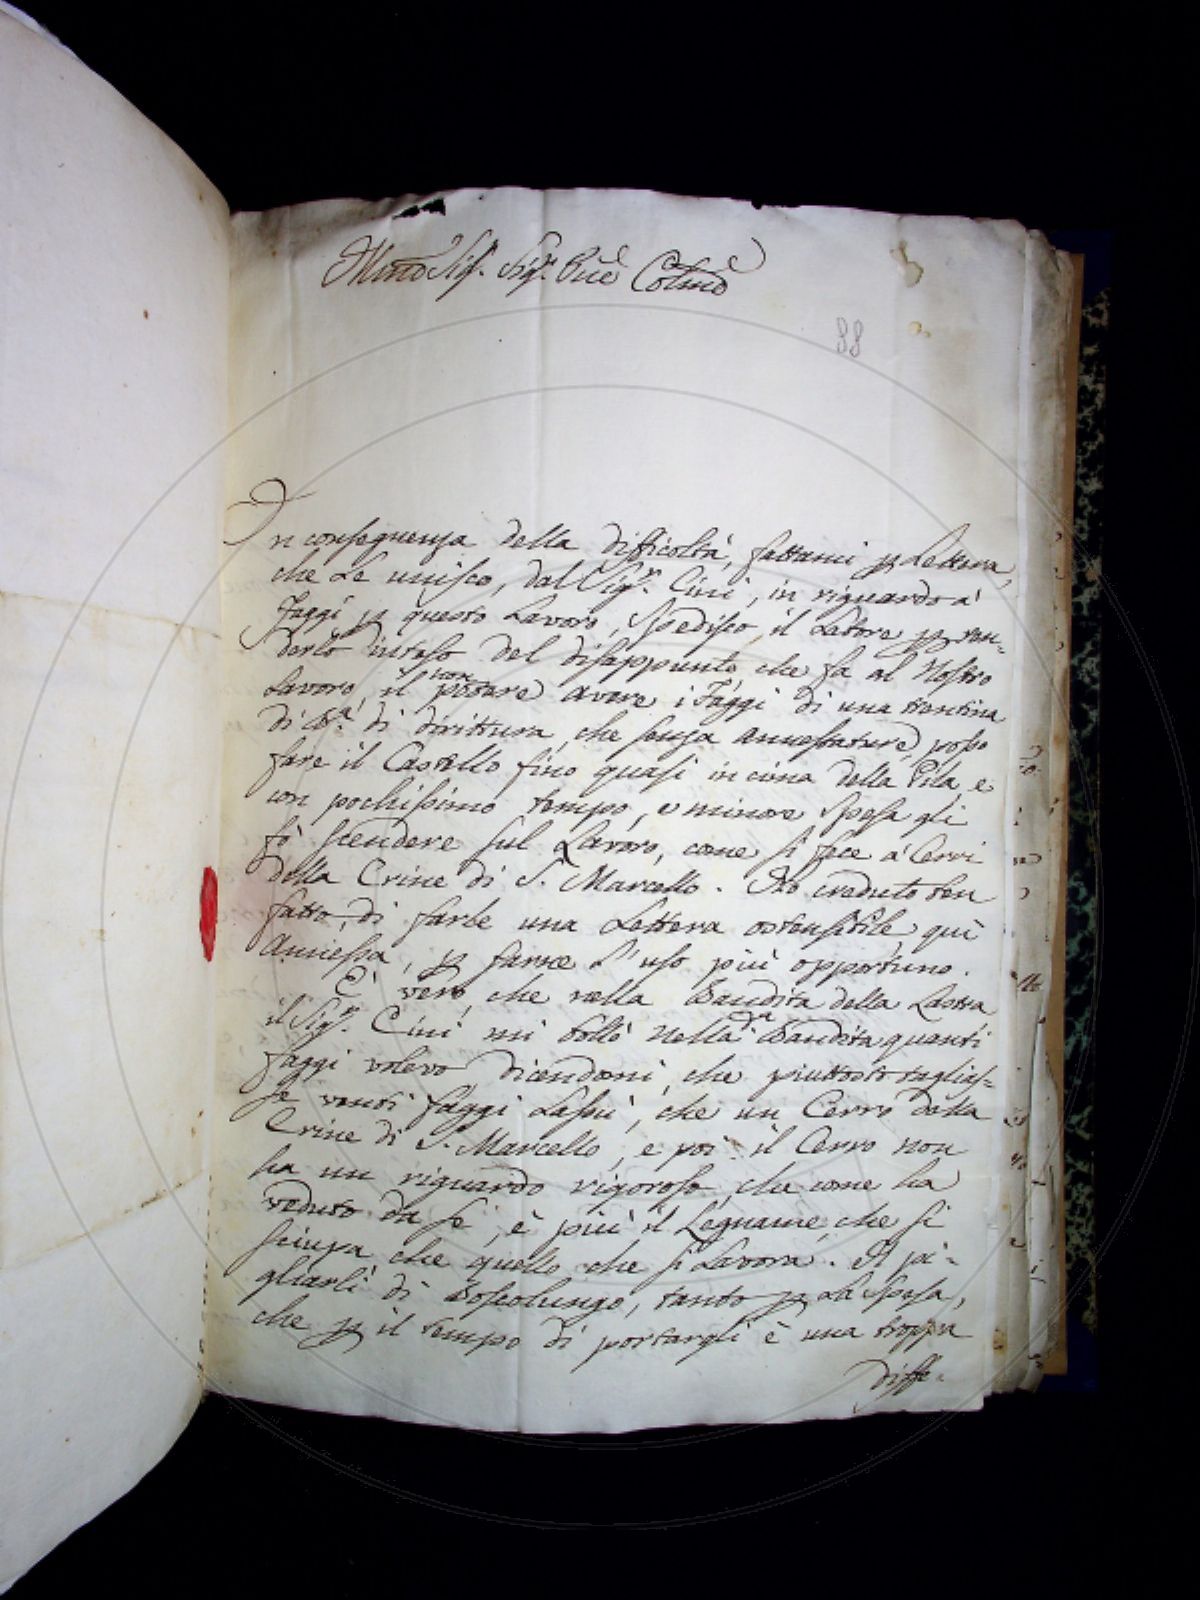 Illmo Sigr. Sigr. Prne Colmo
88
In conseguenza della difficoltà, fattami p Lettera,
che Le unisco, dal Sigr. Cini, in riguardo a'
Faggi p questo Lavoro, spedisco il Latore p ren-
derlo inteso del disappunto, che fa al Nostro
Lavoro, il non potare avere i Faggi di una trentina
di Ba. di dirittura, che senza annestature, posso
fare il Castello fino quasi in cima della Pila, e
con pochissimo tempo, e minore spesa gli
fò scendere sul Lavoro, come si fece a' Cerri
della Crine di S. Marcello. Ho creduto ben
fatto, di farle una Lettera ostensibile quì
annessa, p farne l'uso più opportuno.
È vero, che nella Bandita della Lastra
il Sigr. Cini mi bollò nella da. Bandita quanti
faggi volevo, dicendomi, che piuttosto taglias-
se venti faggi Lassù, che un Cerro della
Crine di S. Marcello, e poi il Cerro non
ha un riguardo rigoroso, che come ha
veduto da se, è più il Legname, che si
sciupa che quello che si Lavora. Il pi-
gliarli di Boscolungo, tanto p la spesa,
che p il tempo di portargli è una troppa
diffe-